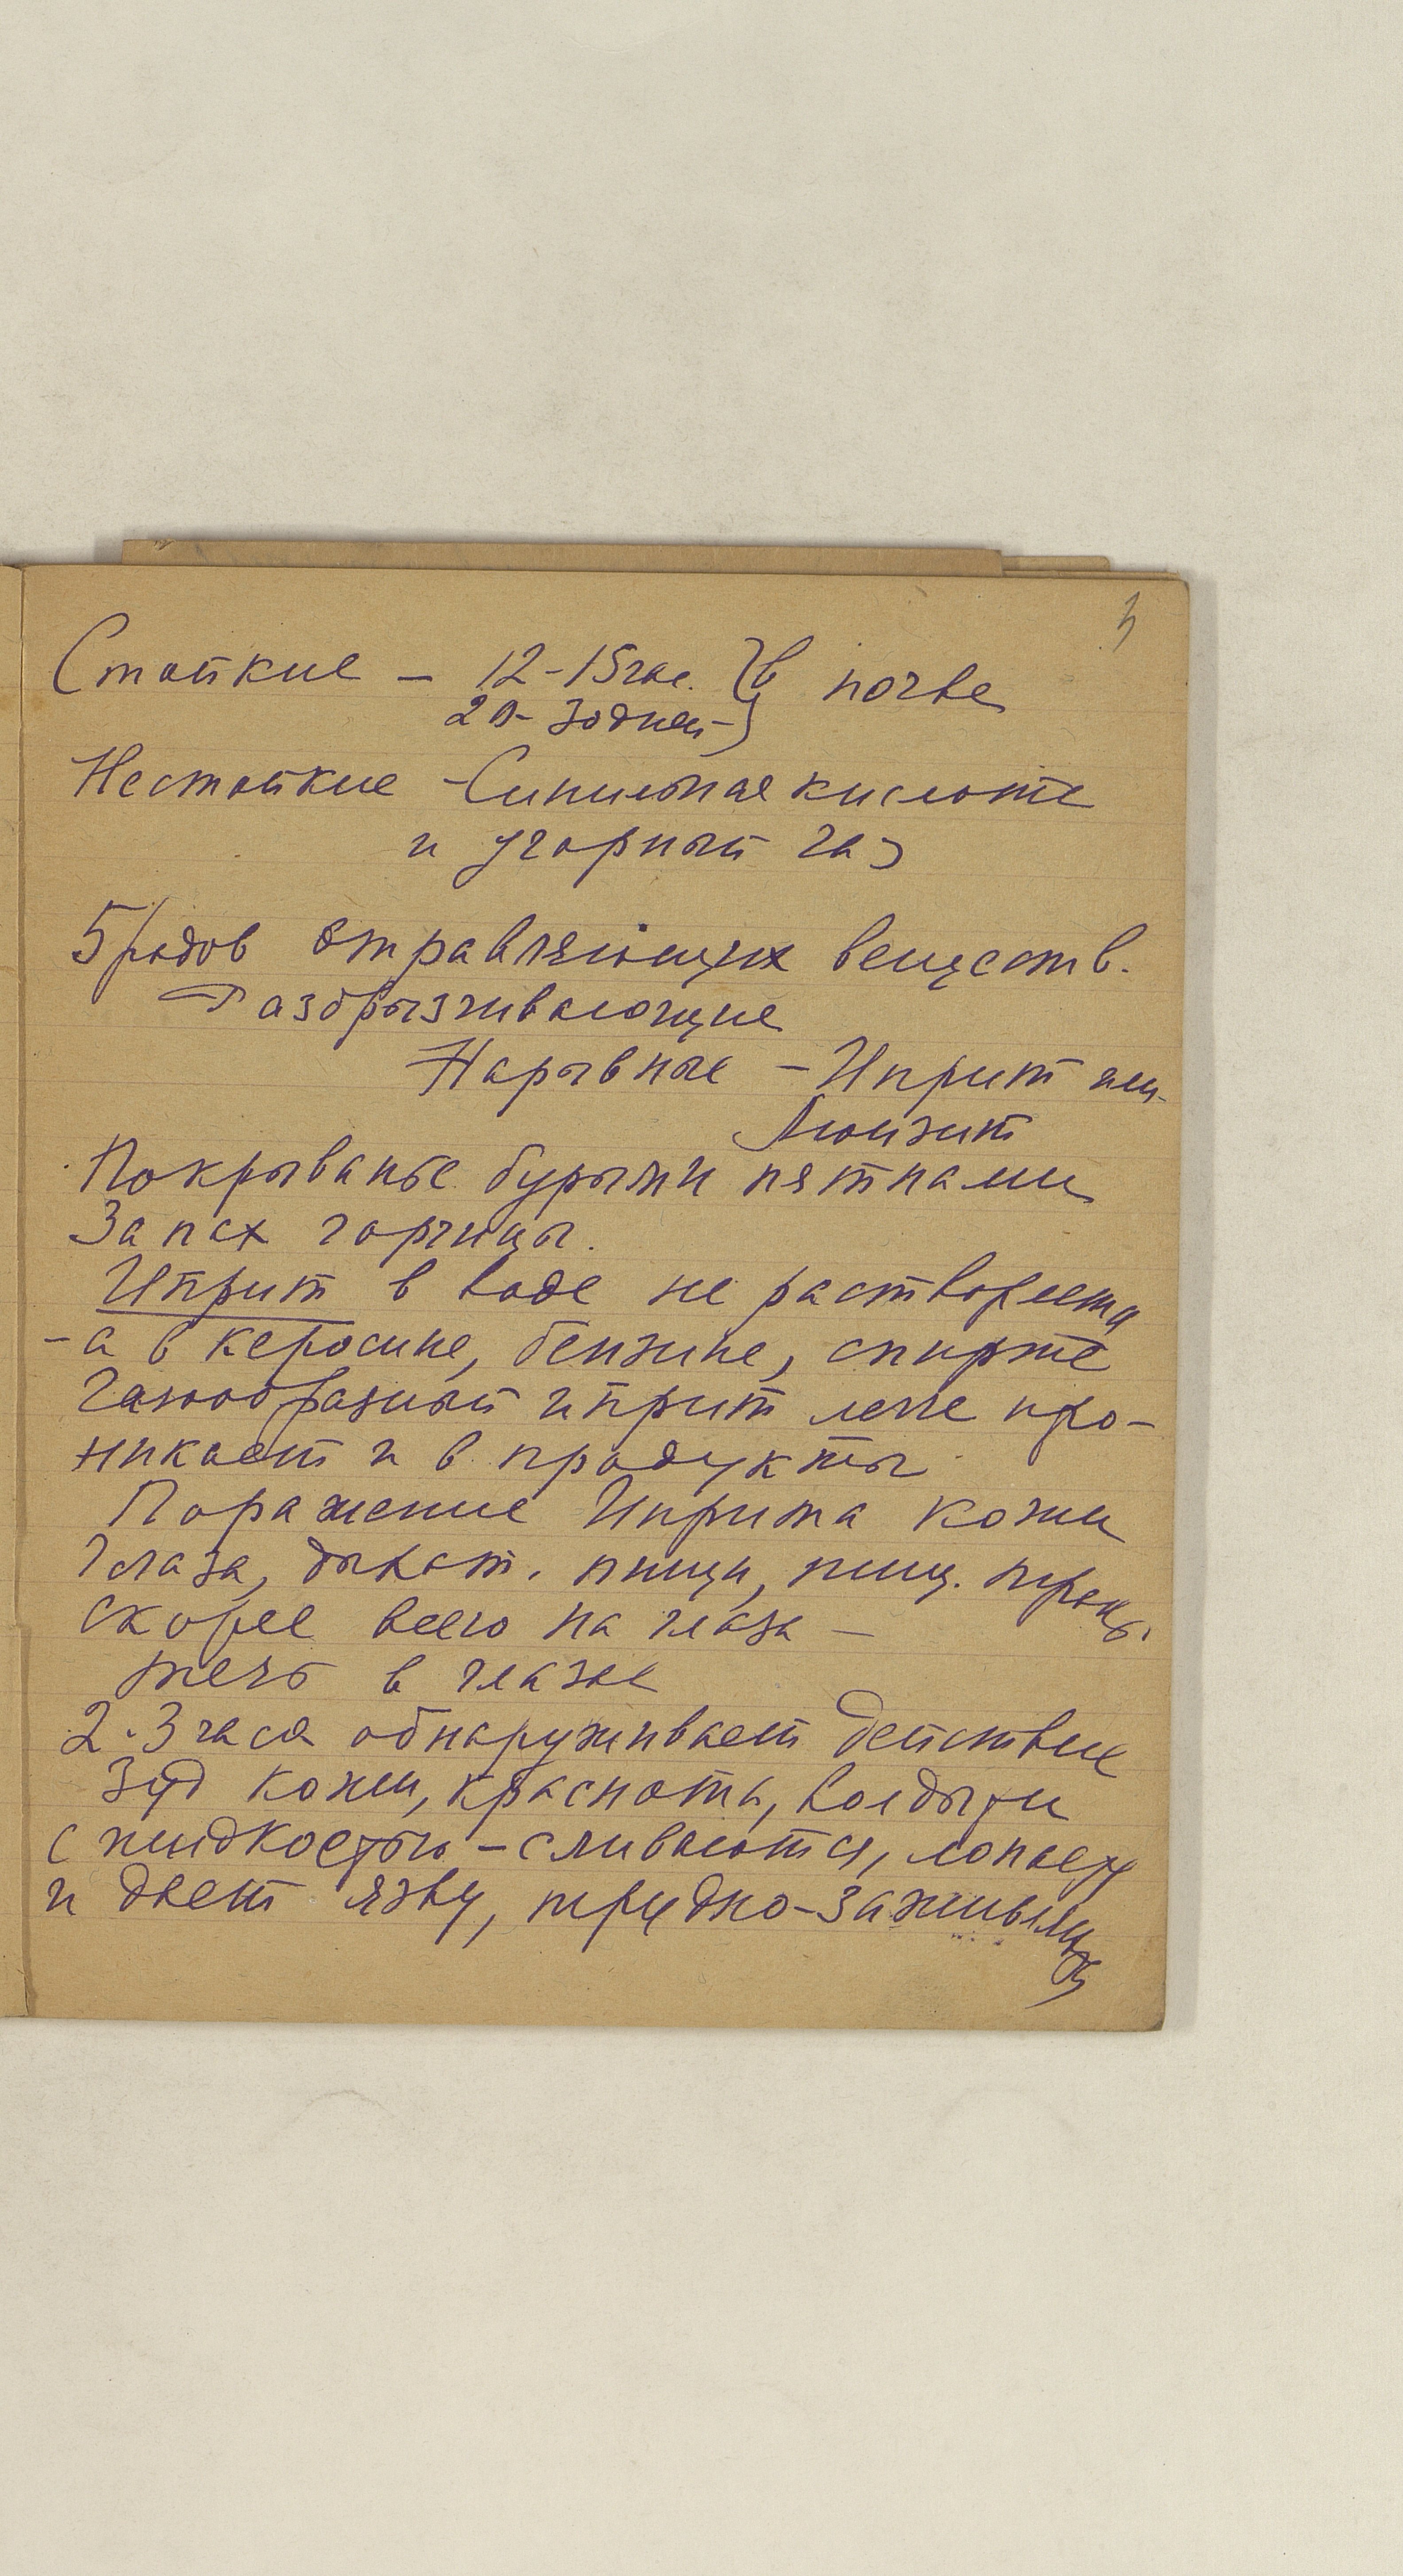 3
Стойкие – 12-15 час. } в почве
20-30 дней – }
Нестойкие – Синильная кислота
и угарный газ
5 родов отравляющих веществ.
Разбрызгивающие
Нарывные – Иприт
Люизит
Покрыванье бурыми пятнами
Запах горчицы.
Иприт в воде не растворяется
– а в керосине, бензине, спирте
Газообразный иприт легче про-
никает и в продукты
Поражение Иприта кожи
глаза, дыхат. пищи, пищ.
скорее всего на глаза –
в глазе
2-3 часа обнаруживает действие
Зуд кожи, краснота, волдыри
с жидкостью – сливаются,
и дает язву, трудно-заживля